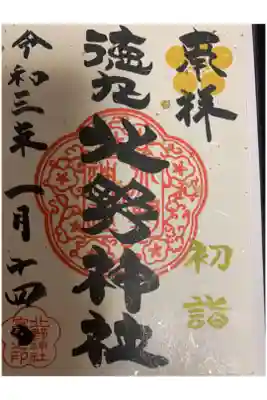 奉拝
初詣
徳丸
北野神社
令和三年 一月十四
北野神社